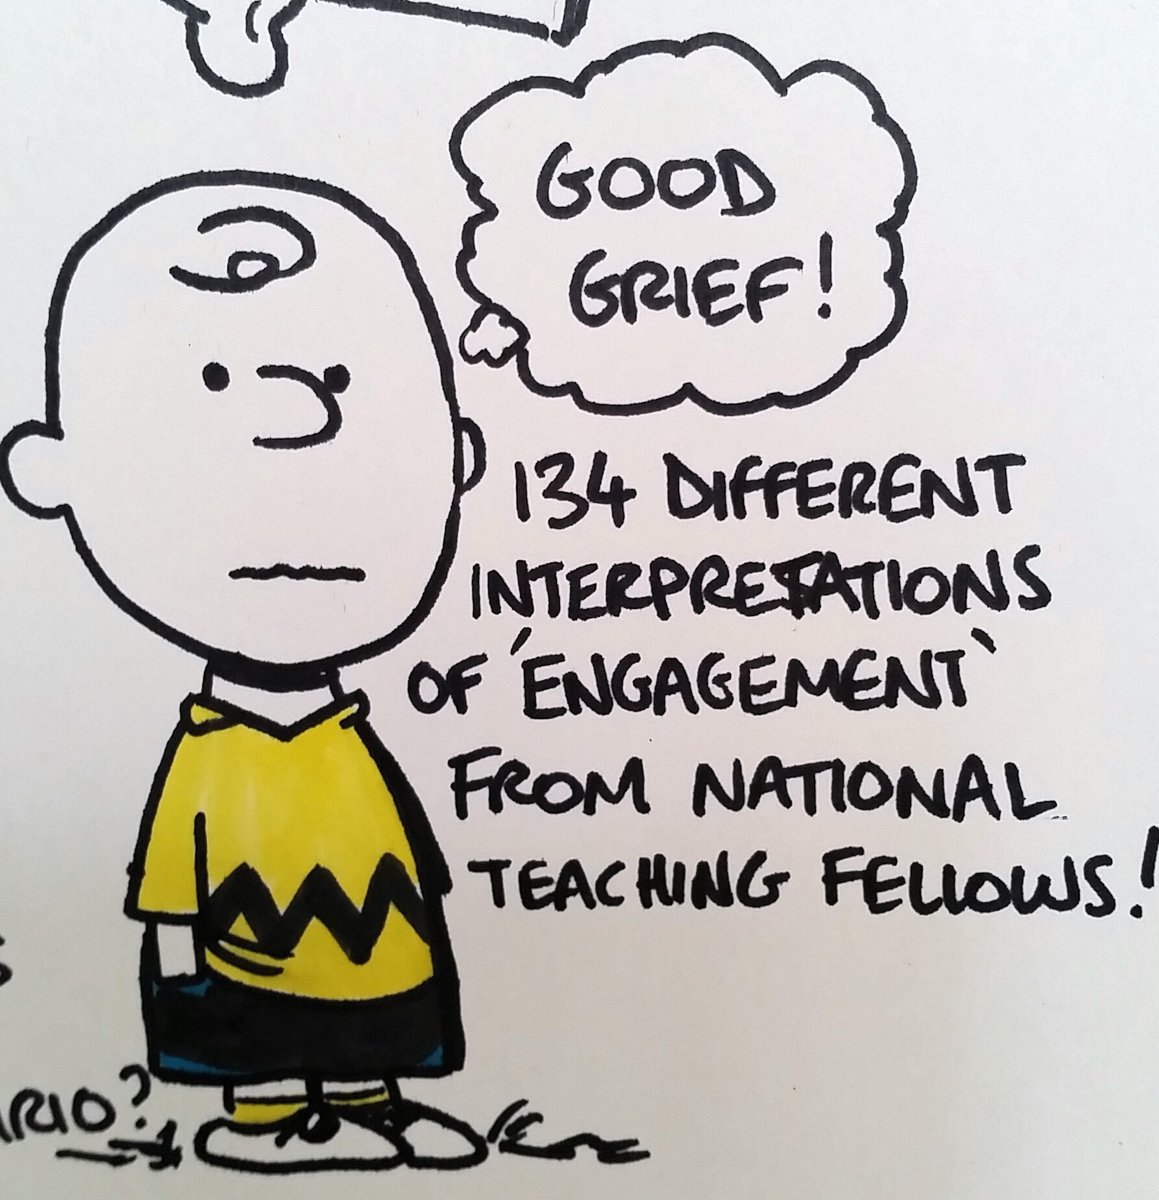 GOOD
GRIEF!
134 DIFFERENT
INTERPRETATIONS
OF 'ENGAGEMENT'
FROM NATIONAL
TEACHING FELLOWS!